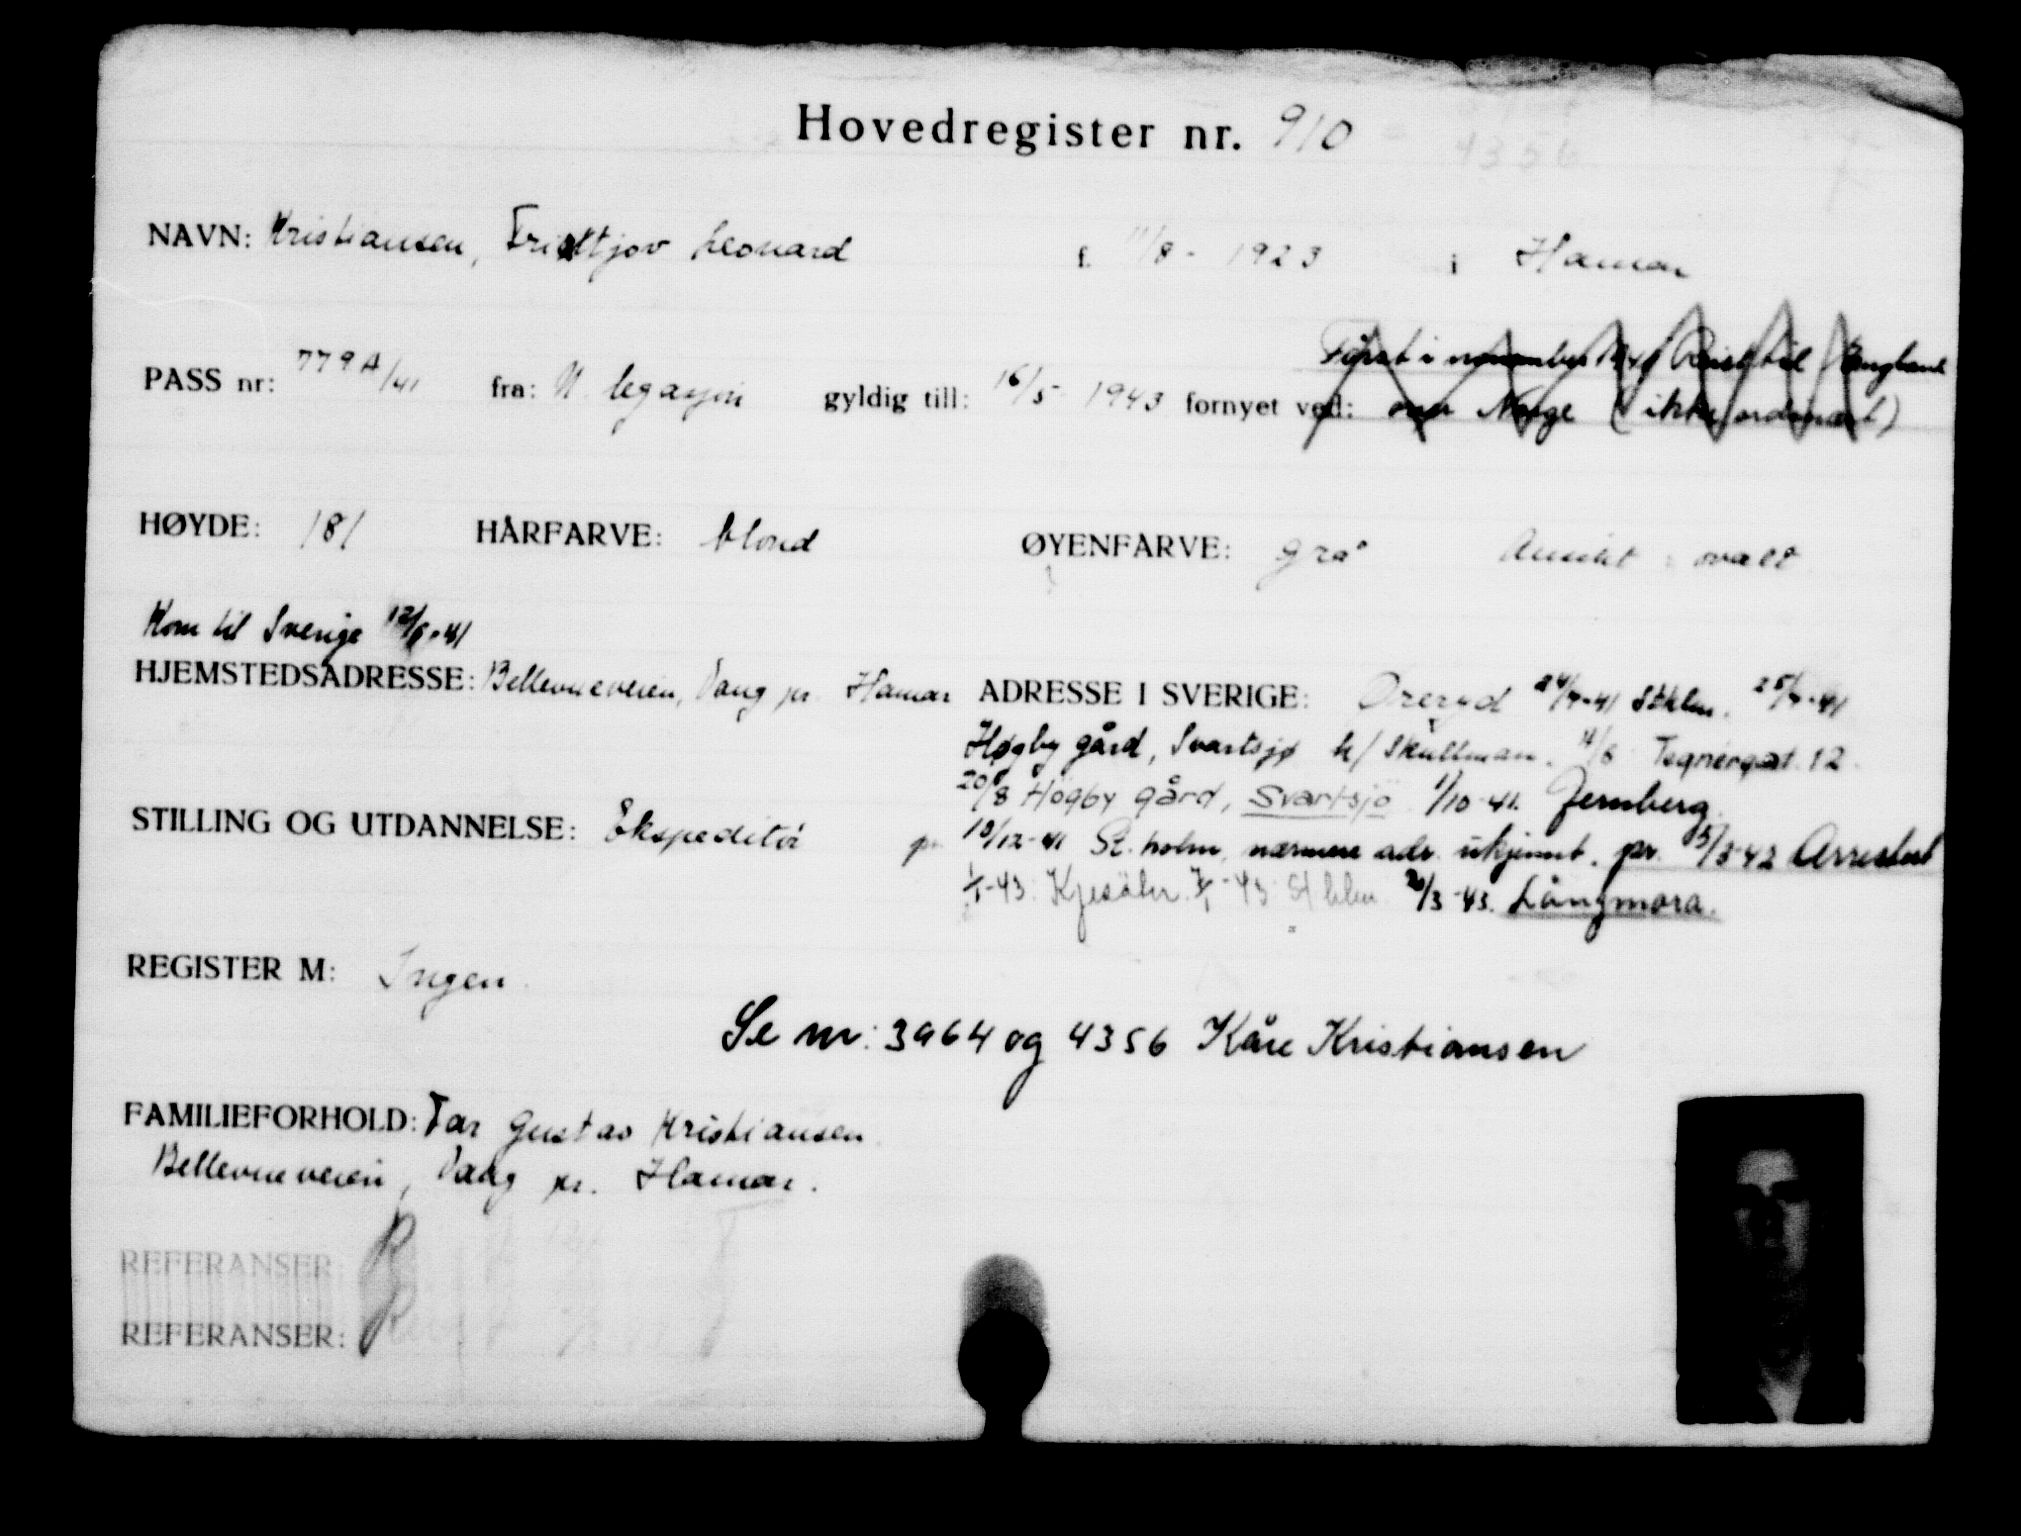 Hovedregister nr. 910
4356
NAVN: Kristiansen, Fridtjov Leonard f. 11/8 - 1923 i Hamar
Først i november 1941 Reist til England
PASS nr: 779A/41 fra: N. legasjon gyldig till: 16/5 - 1943 fornyet ved: over Norge (ikke ordinært)
HØYDE: 181 HÅRFARVE: blond ØYENFARVE: grå Ansikt: ovalt
Kom til Sverige 12/6-41
HJEMSTEDSADRESSE: Bellevueveien, Vang pr. Hamar ADRESSE I SVERIGE: Öreryd 24/7-41 Sthlm. 25/7-41
Høgby gård, Svartsjø h/ Skullman. 11/8 Tegnérgat. 12.
20/8 Högby gård, Svartsjö 1/10-41. Jernberg.
STILLING OG UTDANNELSE: Ekspeditør pr. 10/12-41 St.holm, nærmere adr. ukjennt. pr. 15/3-42 Arrestert
1/1-43: Kjesäter. -43: Sthlm 20/3-43. Långmora.
REGISTER M: Ingen.
Se nr: 3964 og 4356 Kåre Kristiansen
FAMILIEFORHOLD: Far Gustav Kristiansen
Bellevueveien, Vang pr. Hamar.
REFERANSER:
REFERANSER: